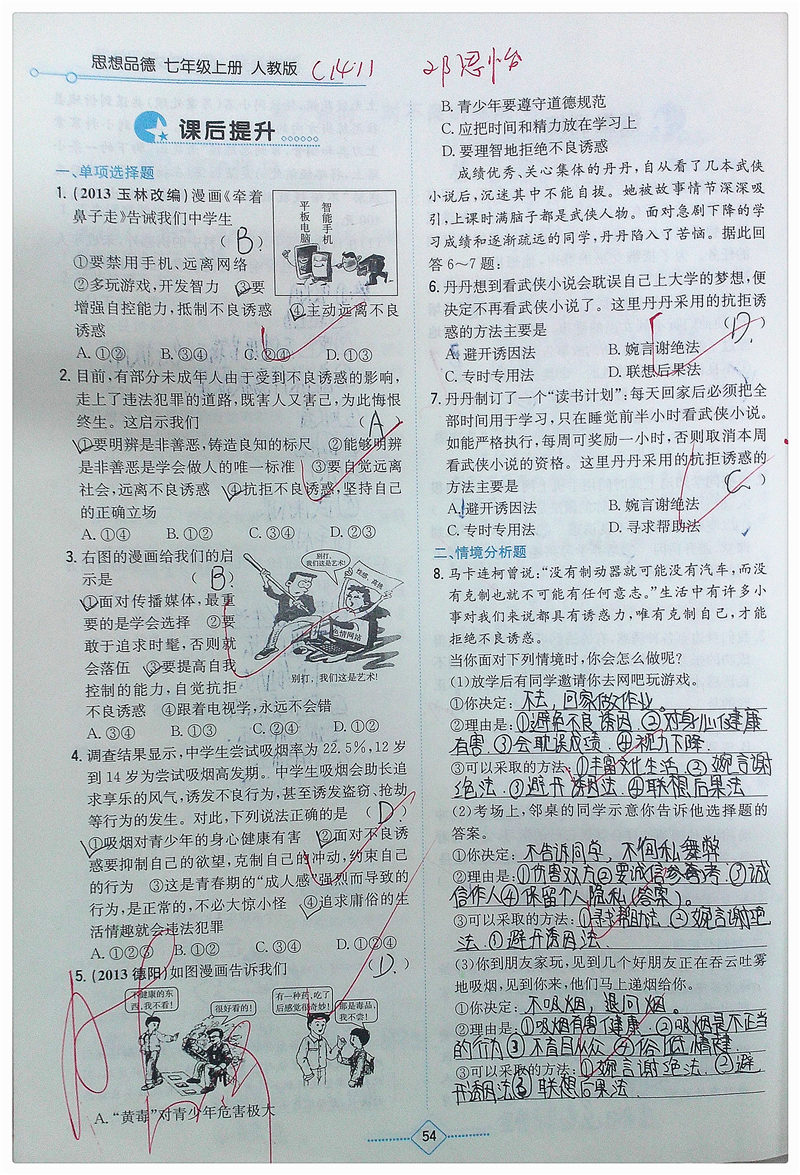 思想品德 七年级上册 人教版 C1411 邓思怡
课后提升
一、单项选择题
1. (2013 玉林改编)漫画《牵着
鼻子走》告诫我们中学生
( B )
平板电脑
智能手机
①要禁用手机、远离网络
②多玩游戏,开发智力 ③要
增强自控能力,抵制不良诱惑 ④主动远离不良
诱惑
A. ①② B. ③④ C. ②④ D. ①③
2. 目前,有部分未成年人由于受到不良诱惑的影响,
走上了违法犯罪的道路,既害人又害己,为此悔恨
终生。这启示我们 ( A )
①要明辨是非善恶,铸造良知的标尺 ②能够明辨
是非善恶是学会做人的唯一标准 ③要自觉远离
社会,远离不良诱惑 ④抗拒不良诱惑,坚持自己
的正确立场
A. ①④ B. ①② C. ③④ D. ②③
3. 右图的漫画给我们的启
示是 ( B )
①面对传播媒体,最重
要的是学会选择 ②要
敢于追求时髦,否则就
会落伍 ③要提高自我
控制的能力,自觉抗拒
不良诱惑 ④跟着电视学,永远不会错
别打,我们这是艺术!
色情网站
别打、我们这是艺术!
A. ③④ B. ①③ C. ②④ D. ①②
4. 调查结果显示,中学生尝试吸烟率为 22.5%,12 岁
到 14 岁为尝试吸烟高发期。中学生吸烟会助长追
求享乐的风气,诱发不良行为,甚至诱发盗窃、抢劫
等行为的发生。对此,下列说法正确的是 ( D )
①吸烟对青少年的身心健康有害 ②面对不良诱
惑要抑制自己的欲望,克制自己的冲动,约束自己
的行为 ③这是青春期的“成人感”强烈而导致的
行为,是正常的,不必大惊小怪 ④追求庸俗的生
活情趣就会违法犯罪
A. ①②③ B. ①② C. ③④ D. ①②④
5. (2013 德阳)如图漫画告诉我们 ( D )
不健康的东西,我不看!
很好看的!
有一种药,吃了后感觉很奇妙!
那是毒品,我不尝!
A. “黄毒”对青少年危害极大
B. 青少年要遵守道德规范
C. 应把时间和精力放在学习上
D. 要理智地拒绝不良诱惑
成绩优秀、关心集体的丹丹,自从看了几本武侠
小说后,沉迷其中不能自拔。她被故事情节深深吸
引,上课时满脑子都是武侠人物。面对急剧下降的学
习成绩和逐渐疏远的同学,丹丹陷入了苦恼。据此回
答 6~7 题:
6. 丹丹想到看武侠小说会耽误自己上大学的梦想,便
决定不再看武侠小说了。这里丹丹采用的抗拒诱
惑的方法主要是 ( D )
A. 避开诱因法 B. 婉言谢绝法
C. 专时专用法 D. 联想后果法
7. 丹丹制订了一个“读书计划”:每天回家后必须把全
部时间用于学习,只在睡觉前半小时看武侠小说。
如能严格执行,每周可奖励一小时,否则取消本周
看武侠小说的资格。这里丹丹采用的抗拒诱惑的
方法主要是 ( C )
A. 避开诱因法 B. 婉言谢绝法
C. 专时专用法 D. 寻求帮助法
二、情境分析题
8. 马卡连柯曾说:“没有制动器就可能没有汽车,而没
有克制也就不可能有任何意志。”生活中有许多小
事对我们来说都具有诱惑力,唯有克制自己,才能
拒绝不良诱惑。
当你面对下列情境时,你会怎么做呢?
(1)放学后有同学邀请你去网吧玩游戏。
①你决定: 不去,回家做作业。
②理由是: ①避免不良诱因 ②对身心健康
有害 ③会耽误成绩 ④视力下降.
③可以采取的方法: ①丰富文化生活 ②婉言谢
绝法 ③避开诱因法 ④联想后果法
(2)考场上,邻桌的同学示意你告诉他选择题的
答案。
①你决定: 不告诉同学,不徇私舞弊
②理由是: ①伤害双方 ②要诚信参考 ③诚
信作人 ④保留个人隐私(答案).
③可以采取的方法: ①寻求帮助法 ②婉言谢绝
法. ①避开诱因法
(3)你到朋友家玩,见到几个好朋友正在吞云吐雾
地吸烟,见到你来,他们马上递烟给你。
①你决定: 不吸烟、退回烟。
②理由是: ①吸烟有害健康 ②吸烟是不正当
的行为 ③不盲目从众 ④俗低情趣.
③可以采取的方法: ①婉言谢绝法. ②避
开诱因法 ③联想后果法.
54